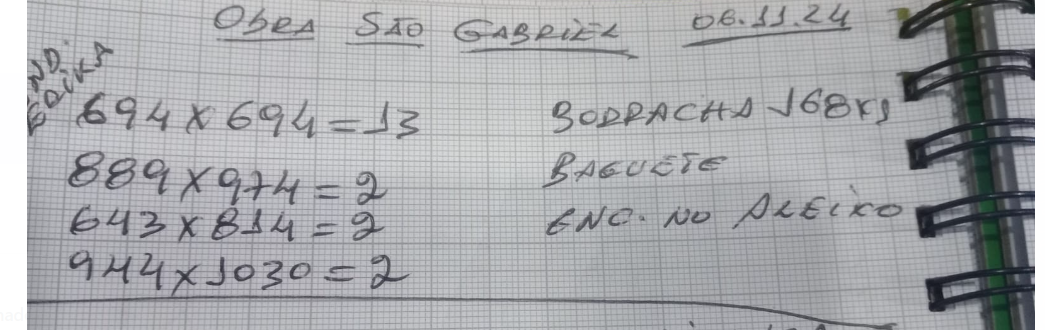 OBRA SÃO GABRIEL 06.11.24
694 x 694 = 13
889 x 974 = 2
643 x 814 = 2
944 x 1030 = 2
BORRACHA 168 KG
BAGUETE
ENC. NO ALEIXO